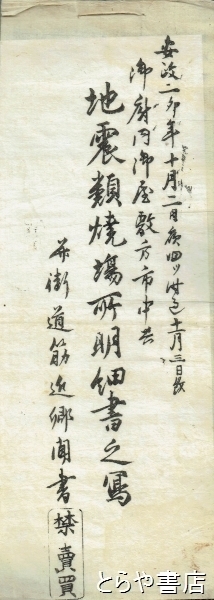 安政二卯年十月二日夜四ツ時ゟ十一月三日迄
御府内御屋敷方市中共
地震類焼場所明細書之写
并街道筋近郷聞書
禁賣買
とらや書店